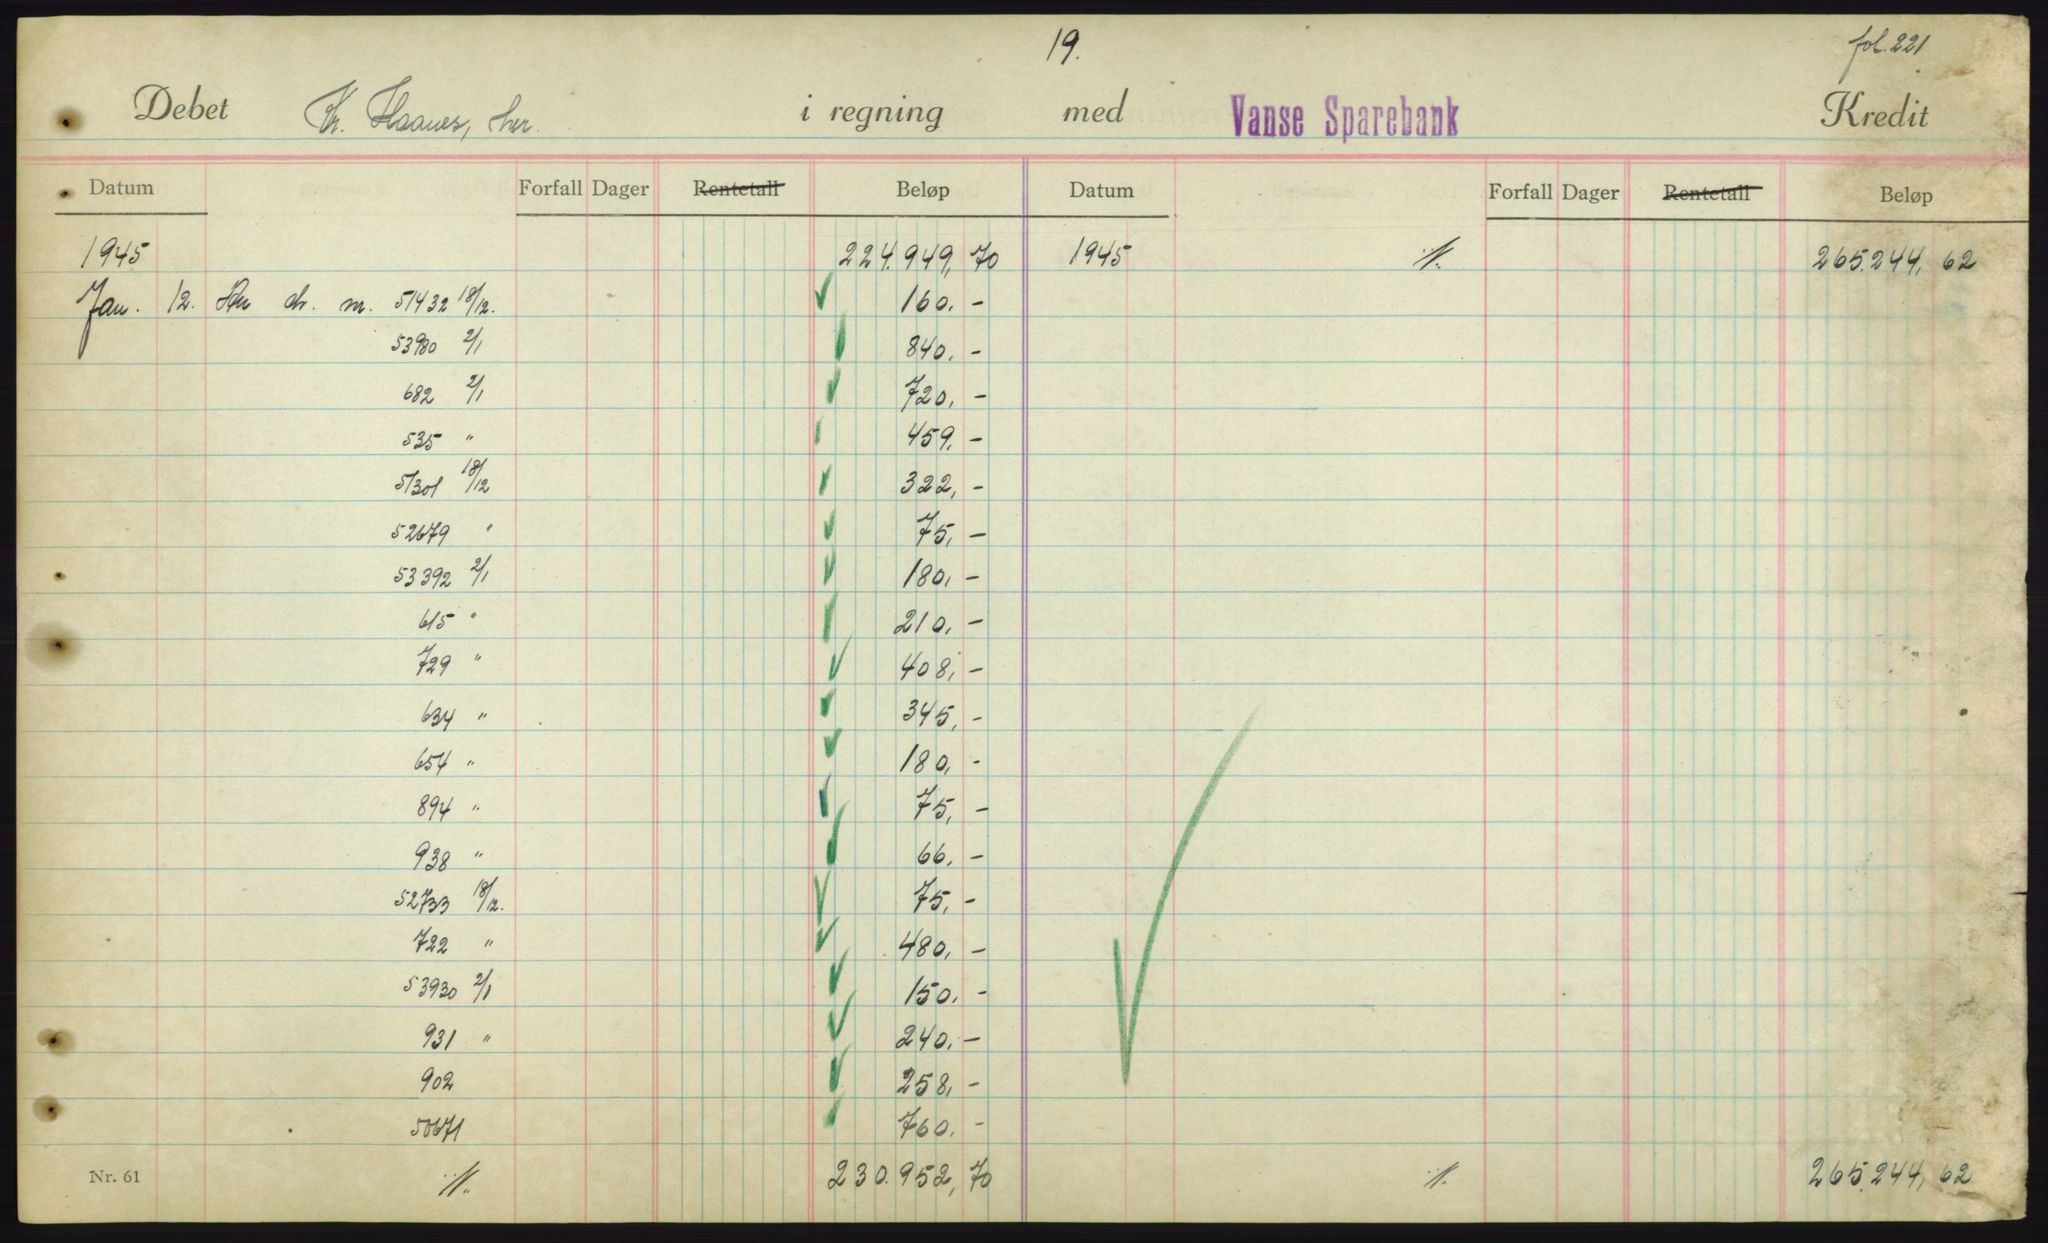 19.
fol. 221
Debet Kr. Haanes, her. i regning med Vanse Sparebank Kredit
Datum Forfall Dager Rentetall Beløp Datum Forfall Dager Rentetall Beløp
1945 224.949,70 1945 265.244,62
Jan. 12. nr. 51432 18/12. 160.-
53980 2/1 840.-
682 2/1 720.-
535 " 459.-
51301 18/12 322,-
52679 " 75,-
53392 2/1 180,-
615 " 210,-
729 " 408,-
634 " 345,-
654 " 180,-
894 " 75,-
938 " 66,-
52733 18/12. 75,-
722 " 480,-
53930 2/1 150,-
931 " 240,-
902 258,-
50671 760.-
Nr. 61 230.952,70 265.244,62